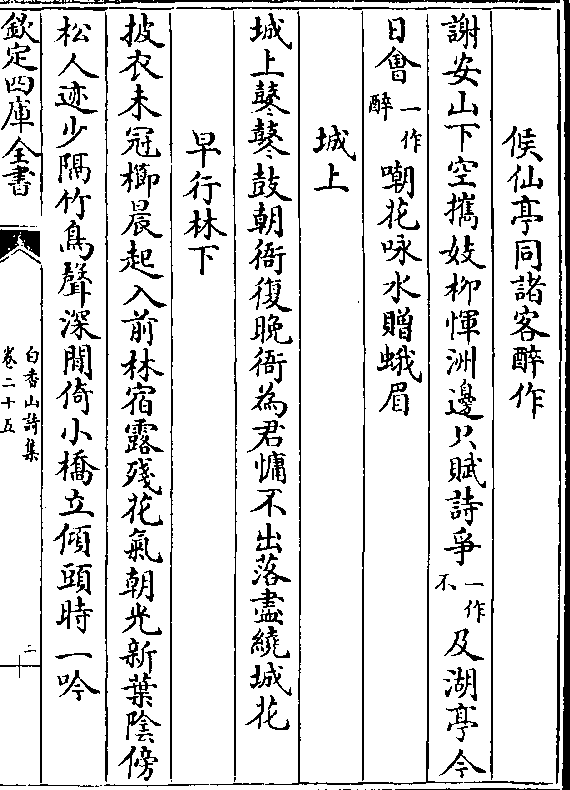 候仙亭同諸客醉作
謝安山下空擕妓柳惲洲邊只賦詩爭一作不及湖亭今
日會一作醉嘲花咏水贈蛾眉
城上
城上鼕鼕鼓朝衙復晚衙為君慵不出落盡繞城花
早行林下
披衣未冠櫛晨起入前林宿露殘花氣朝光新葉陰傍
松人迹少隔竹鳥聲深閒倚小橋立傾頭時一吟
欽定四庫全書
白香山詩集
卷二十五
二